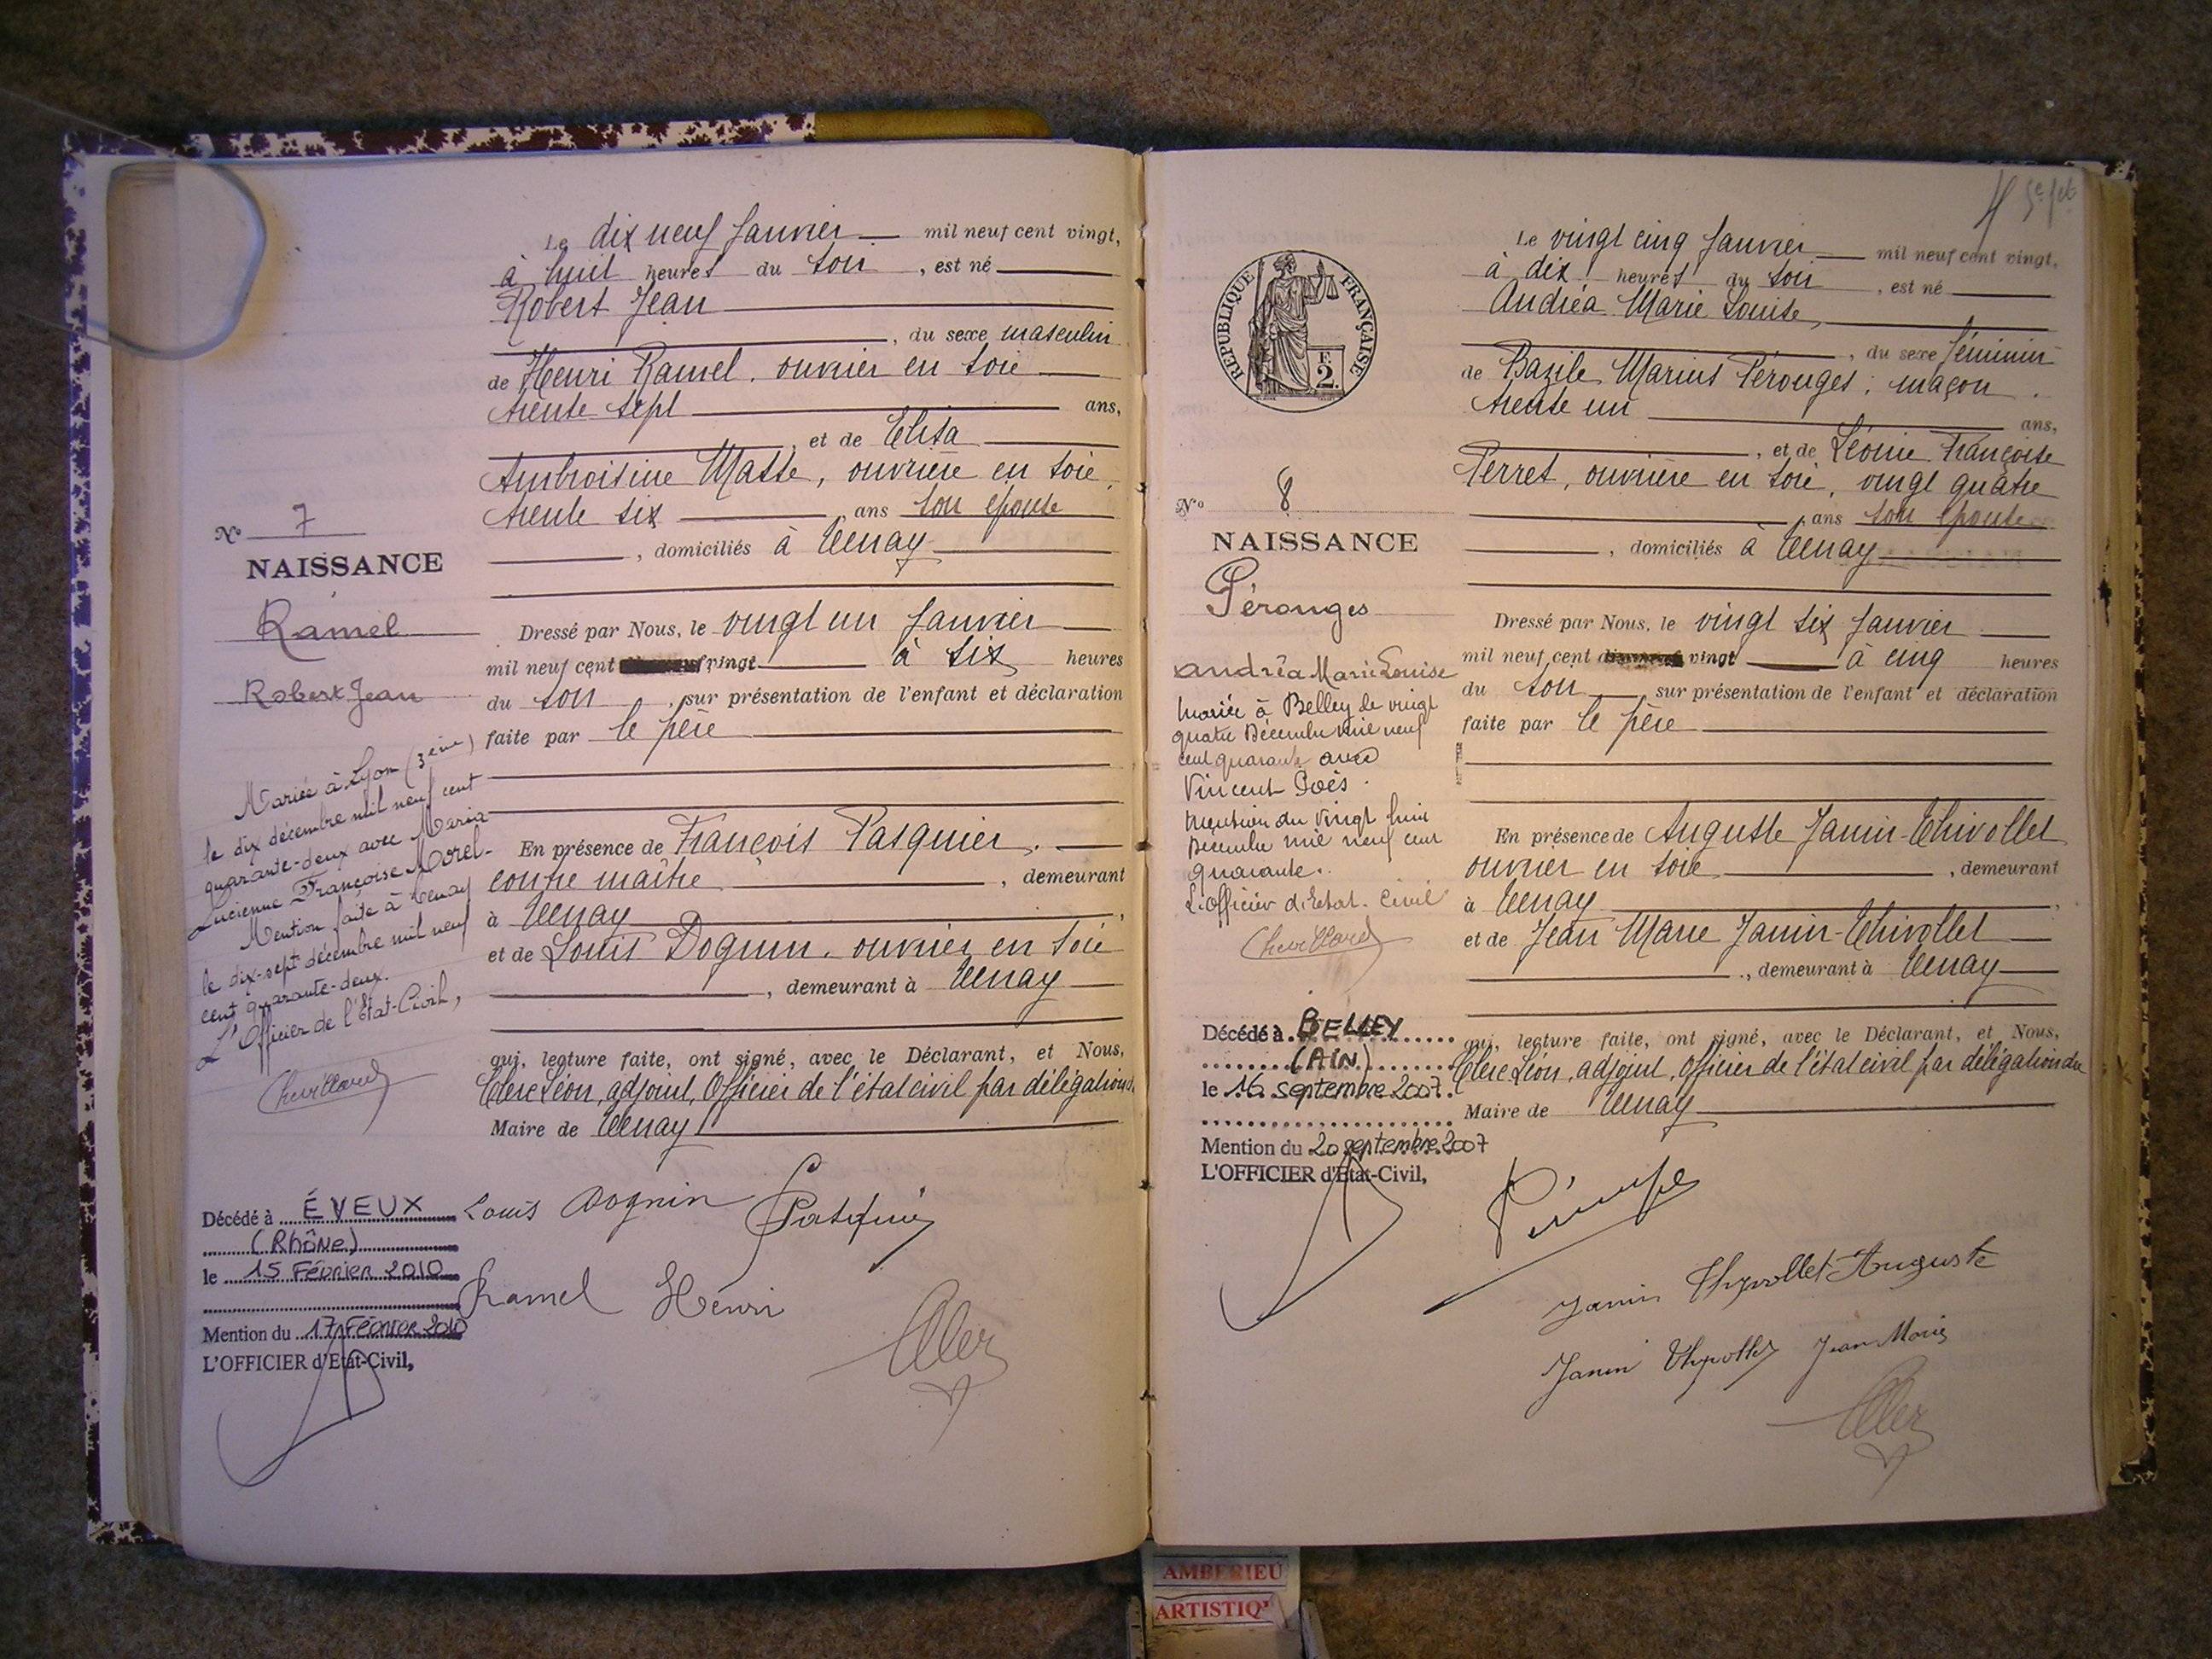 Le dix neuf Janvier mil neuf cent vingt,
à huit heures du soir, est né
Robert Jean
, du sexe masculin
de Henri Ramel, ouvrier en soie
trente sept ans,
, et de Elisa
Ambroisine Masse, ouvrière en soie,
trente six ans son épouse
, domiciliés à Tenay
Nº 7
NAISSANCE
Ramel
Robert Jean
Dressé par Nous, le vingt un Janvier
mil neuf cent vingt à six heures
du soir, sur présentation de l'enfant et déclaration
faite par le père
Mariée à Lyon (3ème)
le dix décembre mil neuf cent
quarante-deux avec Maria
Lucienne Françoise Morel-
Mention faite à Tenay
le dix-sept décembre mil neuf
cent quarante-deux.
L'Officier de l'Etat-Civil,
Chevillard
En présence de François Pasquier,
contre maître, demeurant
à Tenay,
et de Louis Dognin, ouvrier en soie
, demeurant à Tenay
qui, lecture faite, ont signé, avec le Déclarant, et Nous,
Clerc Léon, adjoint, Officier de l'état civil par délégation du
Maire de Tenay
Décédé à ÉVEUX
(Rhône)
le 15 Février 2010
Mention du 17 Février 2010
L'OFFICIER d'Etat-Civil,
Louis Dognin Pasquier
Ramel Henri
Clerc
REPUBLIQUE FRANÇAISE
2
Le vingt cinq Janvier mil neuf cent vingt,
à dix heures du soir, est né
Andréa Marie Louise,
, du sexe féminin
de Bazile Marius Pérouges, maçon.
trente un ans,
, et de Léonie Françoise
Perret, ouvrière en soie, vingt quatre
, ans son épouse
, domiciliés à Tenay
Nº 8
NAISSANCE
Pérouges
Andréa Marie Louise
Dressé par Nous, le vingt six Janvier
mil neuf cent vingt à cinq heures
du soir, sur présentation de l'enfant et déclaration
faite par le père
Mariée à Belley le vingt
quatre Décembre mil neuf
cent quarante avec
Vincent Goës.
Mention du vingt huit
Décembre mil neuf cent
quarante.
L'Officier d'Etat-Civil
Chevillard
En présence de Auguste Janin-Thivollet
ouvrier en soie, demeurant
à Tenay,
et de Jean Marie Janin-Thivollet
, demeurant à Tenay
qui, lecture faite, ont signé, avec le Déclarant, et Nous,
Clerc Léon, adjoint, Officier de l'état civil par délégation du
Maire de Tenay
Décédé à BELLEY
(AIN)
le 16 septembre 2007.
Mention du 20 septembre 2007
L'OFFICIER d'Etat-Civil,
Pérouges
Janin Thyvollet Auguste
Janin Thyvollet Jean Marie
Clerc
AMBERIEU
ARTISTIQ